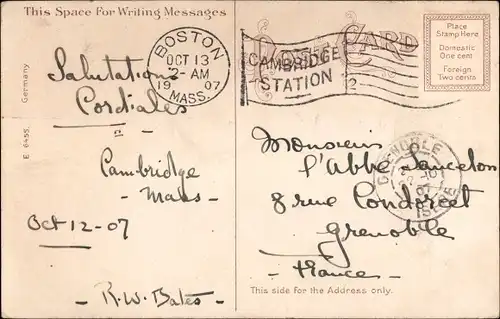 This Space for Writing Messages
BOSTON
OCT 13
2-AM
1907
MASS.
Salutations
Cordiales
Cambridge
- Mass -
Oct 12-07
- R.W. Bates -
E 6455. Germany
POST CARD
CAMBRIDGE
STATION
2
Place
Stamp Here
Domestic
One cent
Foreign
Two cents
Monsieur
l'Abbé
8 rue Condorcet
Grenoble
- France -
GRENOBLE
ISERE
This side for the Address only.